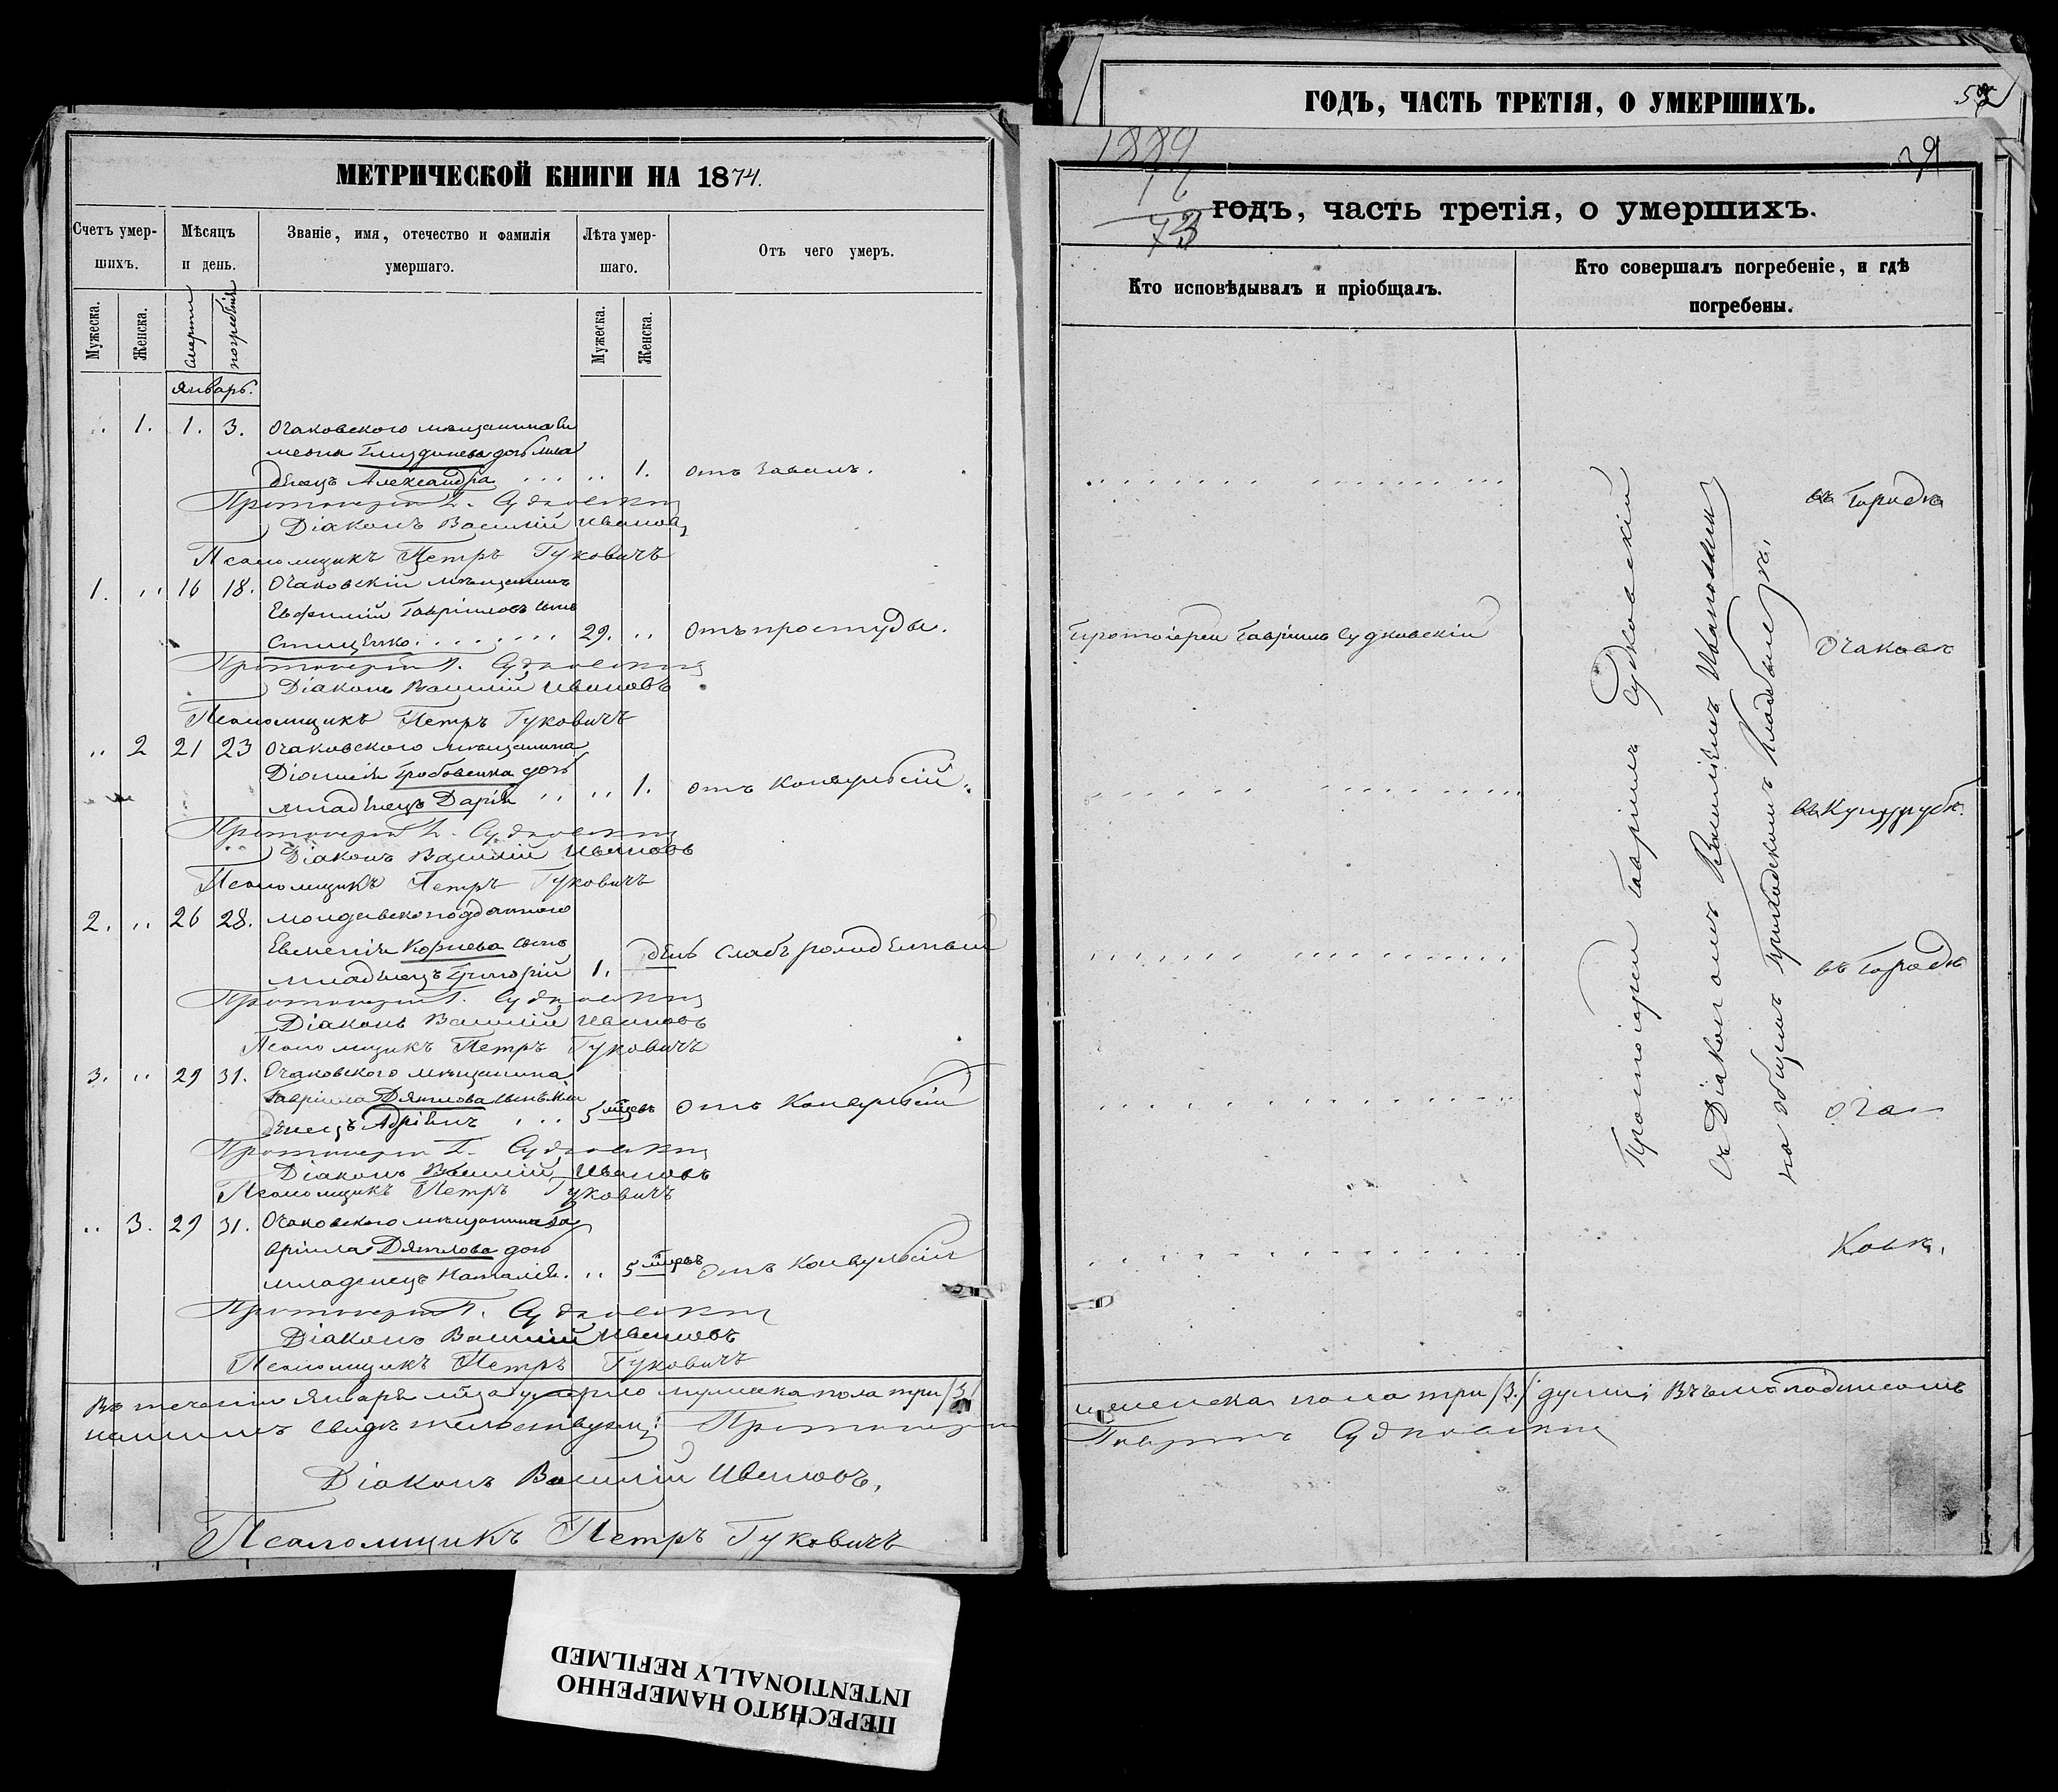 МЕТРИЧЕСКОЙ КНИГИ НА 1874.
Счетъ умер-
шихъ.
Мѣсяцъ
и день.
Званіе, имя, отечество и фамилія
умершаго.
Лѣта умер-
шаго.
Отъ чего умеръ.
Мужеска.
Женска.
Смерти
погребенія
Мужеска.
Женска.
Январь.
.. 1. 1. 3. Очаковского мѣщанина Си
меона дочь мла
денецъ Александра .. 1. отъ
Протоіерей Г. Судковскій
Діаконъ Василій Ивановъ
Псаломщикъ Петръ Гуковичъ
1. .. 16 18. Очаковскій мѣщанинъ
Евфимій Гавріиловъ сынъ
Стищенко 29. .. Отъ простуды.
Протоіерей Г. Судковскій
Діаконъ Василій Ивановъ
Псаломщикъ Петръ Гуковичъ
.. 2 21 23 Очаковского мѣщанина
Діонисія Гробовенка дочь
младенецъ Дарія .. 1. отъ Конвульсій.
Протоіерей Г. Судковскій
Діаконъ Василій Ивановъ
Псаломщикъ Петръ Гуковичъ
2. .. 26 28. Молдавскоподданного
Евменія Корнева сынъ
младенецъ Григорій 1. день Слабъ рожденный
Протоіерей Г. Судковскій
Діаконъ Василій Ивановъ
Псаломщикъ Петръ Гуковичъ
3. .. 29 31. Очаковского мѣщанина
Гавріила Дятлова сынъ мла
денецъ Адріанъ 5 мцевъ отъ Конвульсій
Протоіерей Г. Судковскій
Діаконъ Василій Ивановъ
Псаломщикъ Петръ Гуковичъ
.. 3. 29 31. Очаковского мѣщанина Га
вріила Дятлова дочь
младенецъ Наталія. .. 5 мцевъ отъ Конвульсій
Протоіерей Г. Судковскій
Діаконъ Василій Ивановъ
Псаломщикъ Петръ Гуковичъ
Въ теченіи Января мца умерло мужеска пола три /3/
нашимъ свидѣтельствуемъ: Протоіерей
Діаконъ Василій Ивановъ,
Псаломщикъ Петръ Гуковичъ
ГОДЪ, ЧАСТЬ ТРЕТІЯ, О УМЕРШИХЪ.
годъ, часть третія, о умершихъ.
Кто исповѣдывалъ и пріобщалъ.
Кто совершалъ погребеніе, и гдѣ
погребены.
въ Городкѣ
Протоіерей Гавріилъ Судковскій
Очаковѣ
въ
въ Городкѣ
Оча
Протоіерей Гавріилъ Судковскій
съ Діакономъ Василіемъ Ивановымъ
на общемъ приходскомъ кладбищѣ,
женска пола три /3./ душъ; Въ чемъ подписомъ
Гавріилъ Судковскій
ПЕРЕСНЯТО НАМЕРЕННО
INTENTIONALLY REFILMED